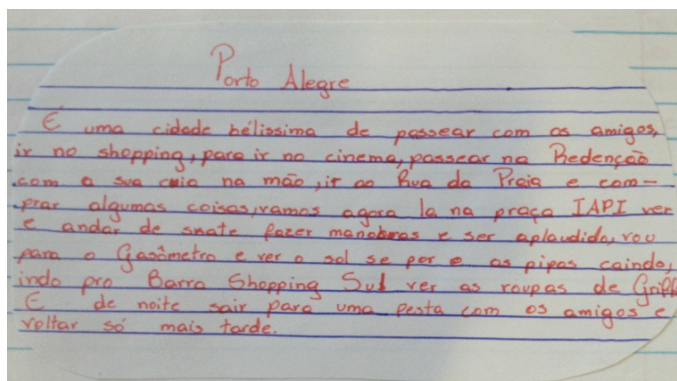 Porto Alegre
É uma cidade bélissima de passear com os amigos,
ir no shopping, para ir no cinema, passear na Redenção
com a sua cuia na mão, ir ao Rua da Praia e com-
prar algumas coisas, vamos agora la na praça IAPI ver
e andar de skate fazer manobras e ser aplaudido, vou
para o Gasômetro e ver o sol se por e as pipas caindo,
indo pro Barra Shopping Sul ver as roupas de Griff
E de noite sair para uma festa com os amigos e
voltar só mais tarde.